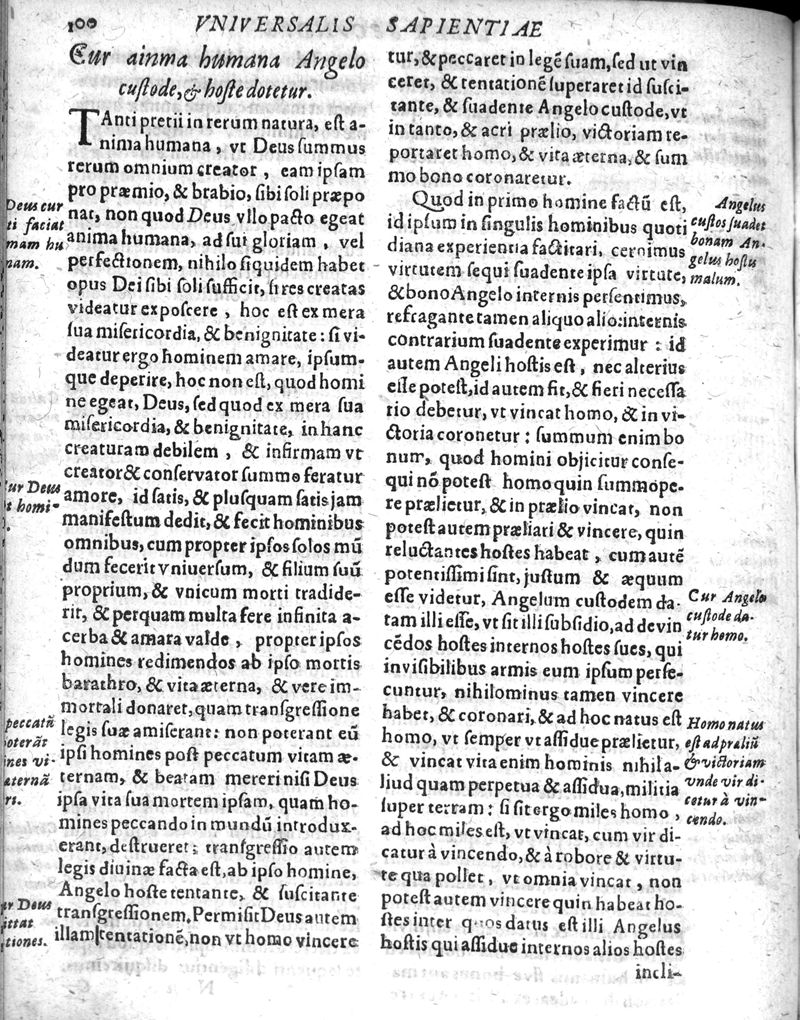 100 VNIVERSALIS SAPIENTIAE
Cur ainma humana Angelo
cuſtode, & hoſte dotetur.
TAnti pretii in rerum natura, eſt a-
nima humana, vt Deus ſummus
rerum omnium creator, eam ipſam
pro præmio, & brabio, ſibi ſoli præpo
nat, non quod Deus vllo pacto egeat
anima humana, ad ſui gloriam, vel
perfectionem, nihilo ſiquidem habet
opus Dei ſibi ſoli ſufficit, ſi res creatas
videatur expoſcere, hoc eſt ex mera
ſua miſericordia, & benignitate: ſi vi-
deatur ergo hominem amare, ipſum-
que deperire, hoc non eſt, quod homi
ne egeat, Deus, ſed quod ex mera ſua
miſericordia, & benignitate, in hanc
creaturam debilem, & infirmam vt
creator & conſervator ſummo feratur
amore, id ſatis, & pluſquam ſatis jam
manifeſtum dedit, & fecit hominibus
omnibus, cum propter ipſos ſolos mū
dum fecerit vniuerſum, & filium ſuū
proprium, & vnicum morti tradide-
rit, & perquam multa fere infinita a-
cerba & amara valde, propter ipſos
homines redimendos ab ipſo mortis
barathro, & vita æterna, & vere im-
mortali donaret, quam tranſgreſſione
legis ſuæ amiſerant: non poterant eū
ipſi homines poſt peccatum vitam æ-
ternam, & beatam mereri niſi Deus
ipſa vita ſua mortem ipſam, quam ho-
mines peccando in mundū introdux-
erant, deſtrueret; tranſgreſſio autem
legis diuinæ facta eſt, ab ipſo homine,
Angelo hoſte tentante, & ſuſcitante
tranſgreſſionem. Permiſit Deus autem
illam tentationē, non vt homo vincere
Deus cur
ti faciat
mam hu
nam.
ur Deus
t homi-
peccatū
oterāt
ines vi-
æternā
ri.
ur Deus
ittat
tationes.
tur, & peccaret in legē ſuam, ſed ut vin
ceret, & tentationē ſuperaret id ſuſci-
tante, & ſuadente Angelo cuſtode, vt
in tanto, & acri prælio, victoriam re-
portaret homo, & vita æterna, & ſum
mo bono coronaretur.
Quod in primo homine factū eſt,
id ipſum in ſingulis hominibus quoti
diana experientia factitari, cernimus
virtutem ſequi ſuadente ipſa virtute,
& bono Angelo internis perſentimus,
refragante tamen aliquo alio: internis
contrarium ſuadente experimur: id
autem Angeli hoſtis eſt, nec alterius
eſſe poteſt, id autem fit, & fieri neceſſa
rio debetur, vt vincat homo, & in vi-
ctoria coronetur: ſummum enim bo
num, quod homini objicitur conſe-
qui nō poteſt homo quin ſummope-
re prælietur, & in prælio vincat, non
poteſt autem præliari & vincere, quin
reluctantes hoſtes habeat, cum autē
potentiſſimi ſint, juſtum & æquum
eſſe videtur, Angelum cuſtodem da-
tam illi eſſe, vt ſit illi ſubſidio, ad devin
cēdos hoſtes internos hoſtes ſues, qui
inviſibilibus armis eum ipſum perſe-
cuntur, nihilominus tamen vincere
habet, & coronari, & ad hoc natus eſt
homo, vt ſemper vt aſſidue prælietur,
& vincat vita enim hominis nihil a-
liud quam perpetua & aſſidua, militia
ſuper terram: ſi ſit ergo miles homo,
ad hoc miles eſt, vt vincat, cum vir di-
catur à vincendo, & à robore & virtu-
te qua pollet, vt omnia vincat, non
poteſt autem vincere quin habeat ho-
ſtes inter quos datus eſt illi Angelus
hoſtis qui aſſidue internos alios hoſtes
incli-
Angelus
cuſtos ſuadet
bonam An-
gelus hoſtis
malum.
Cur Angelo
cuſtode da-
tur homo.
Homo natus
eſt ad præliū
& victoriam
vnde vir di-
cetur à vin-
cendo.